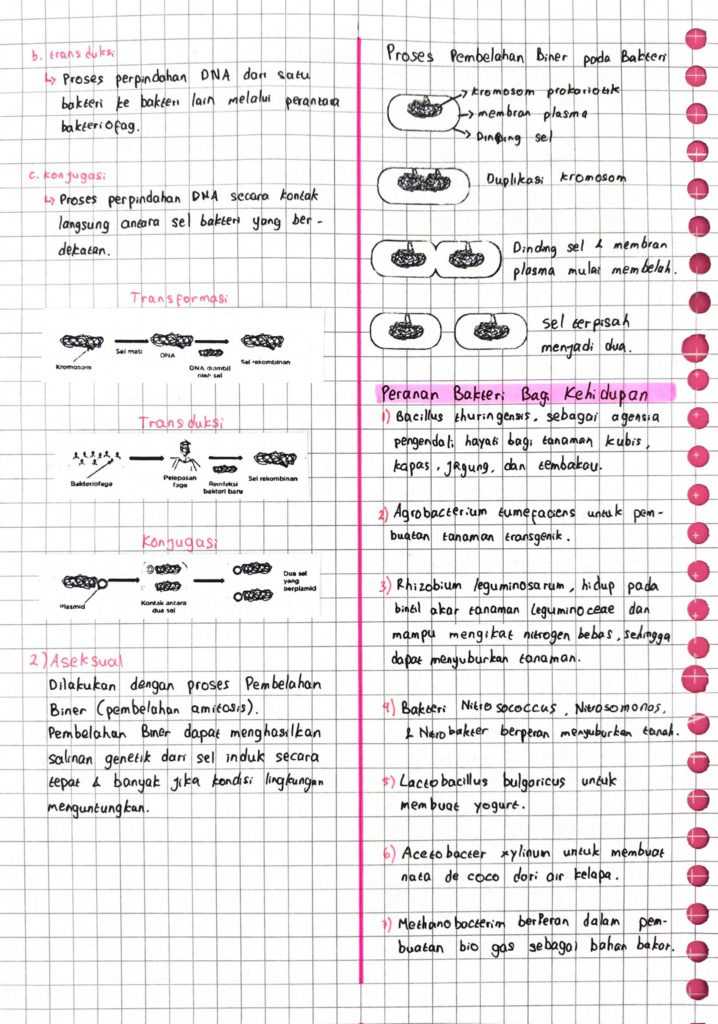 b. transduksi
↳ Proses perpindahan DNA dari satu
bakteri ke bakteri lain melalui perantara
bakteriofag.
c. Konjugasi
↳ Proses perpindahan DNA secara kontak
langsung antara sel bakteri yang ber-
dekatan.
Transformasi
Kromosom
Sel mati
DNA
DNA diambil
oleh sel
Sel rekombinan
Transduksi
Bakteriofage
Pelepasan
fage
Reinfeksi
bakteri baru
Sel rekombinan
Konjugasi
Plasmid
Kontak antara
dua sel
Dua sel
yang
berplamid
2) Aseksual
Dilakukan dengan proses Pembelahan
Biner (pembelahan amitosis).
Pembelahan Biner dapat menghasilkan
salinan genetik dari sel induk secara
tepat & banyak jika kondisi lingkungan
menguntungkan.
Proses Pembelahan Biner pada Bakteri
kromosom prokariotik
membran plasma
Dinding sel
Duplikasi kromosom
Dinding sel & membran
plasma mulai membelah.
Sel terpisah
menjadi dua.
Peranan Bakteri Bagi Kehidupan
1) Bacillus thuringensis, sebagai agensia
pengendali hayati bagi tanaman kubis,
kapas, jagung, dan tembakau.
2) Agrobacterium tumefaciens untuk pem-
buatan tanaman transgenik.
3) Rhizobium leguminosarum, hidup pada
bintil akar tanaman leguminoceae dan
mampu mengikat nitrogen bebas, sehingga
dapat menyuburkan tanaman.
4) Bakteri Nitrosococcus, Nitrosomonas,
& Nitrobakter berperan menyuburkan tanah.
5) Lactobacillus bulgaricus untuk
membuat yogurt.
6) Acetobacter xylinum untuk membuat
nata de coco dari air kelapa.
7) Methanobacterim berperan dalam pem-
buatan bio gas sebagai bahan bakar.